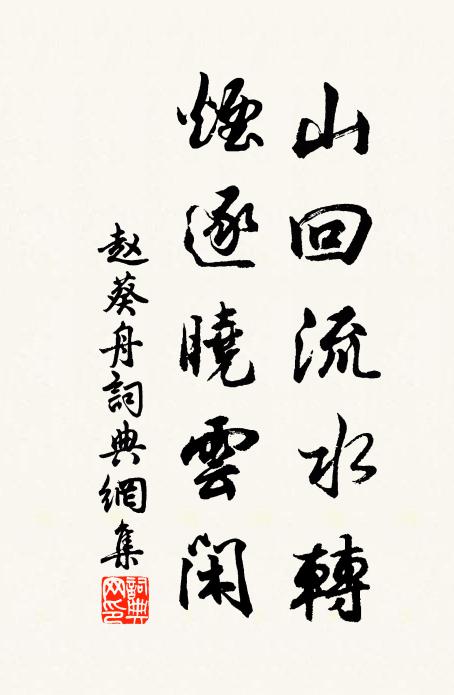 山回流水轉
煙逐曉雲閑
赵葵舟詞典網集
詞典网印